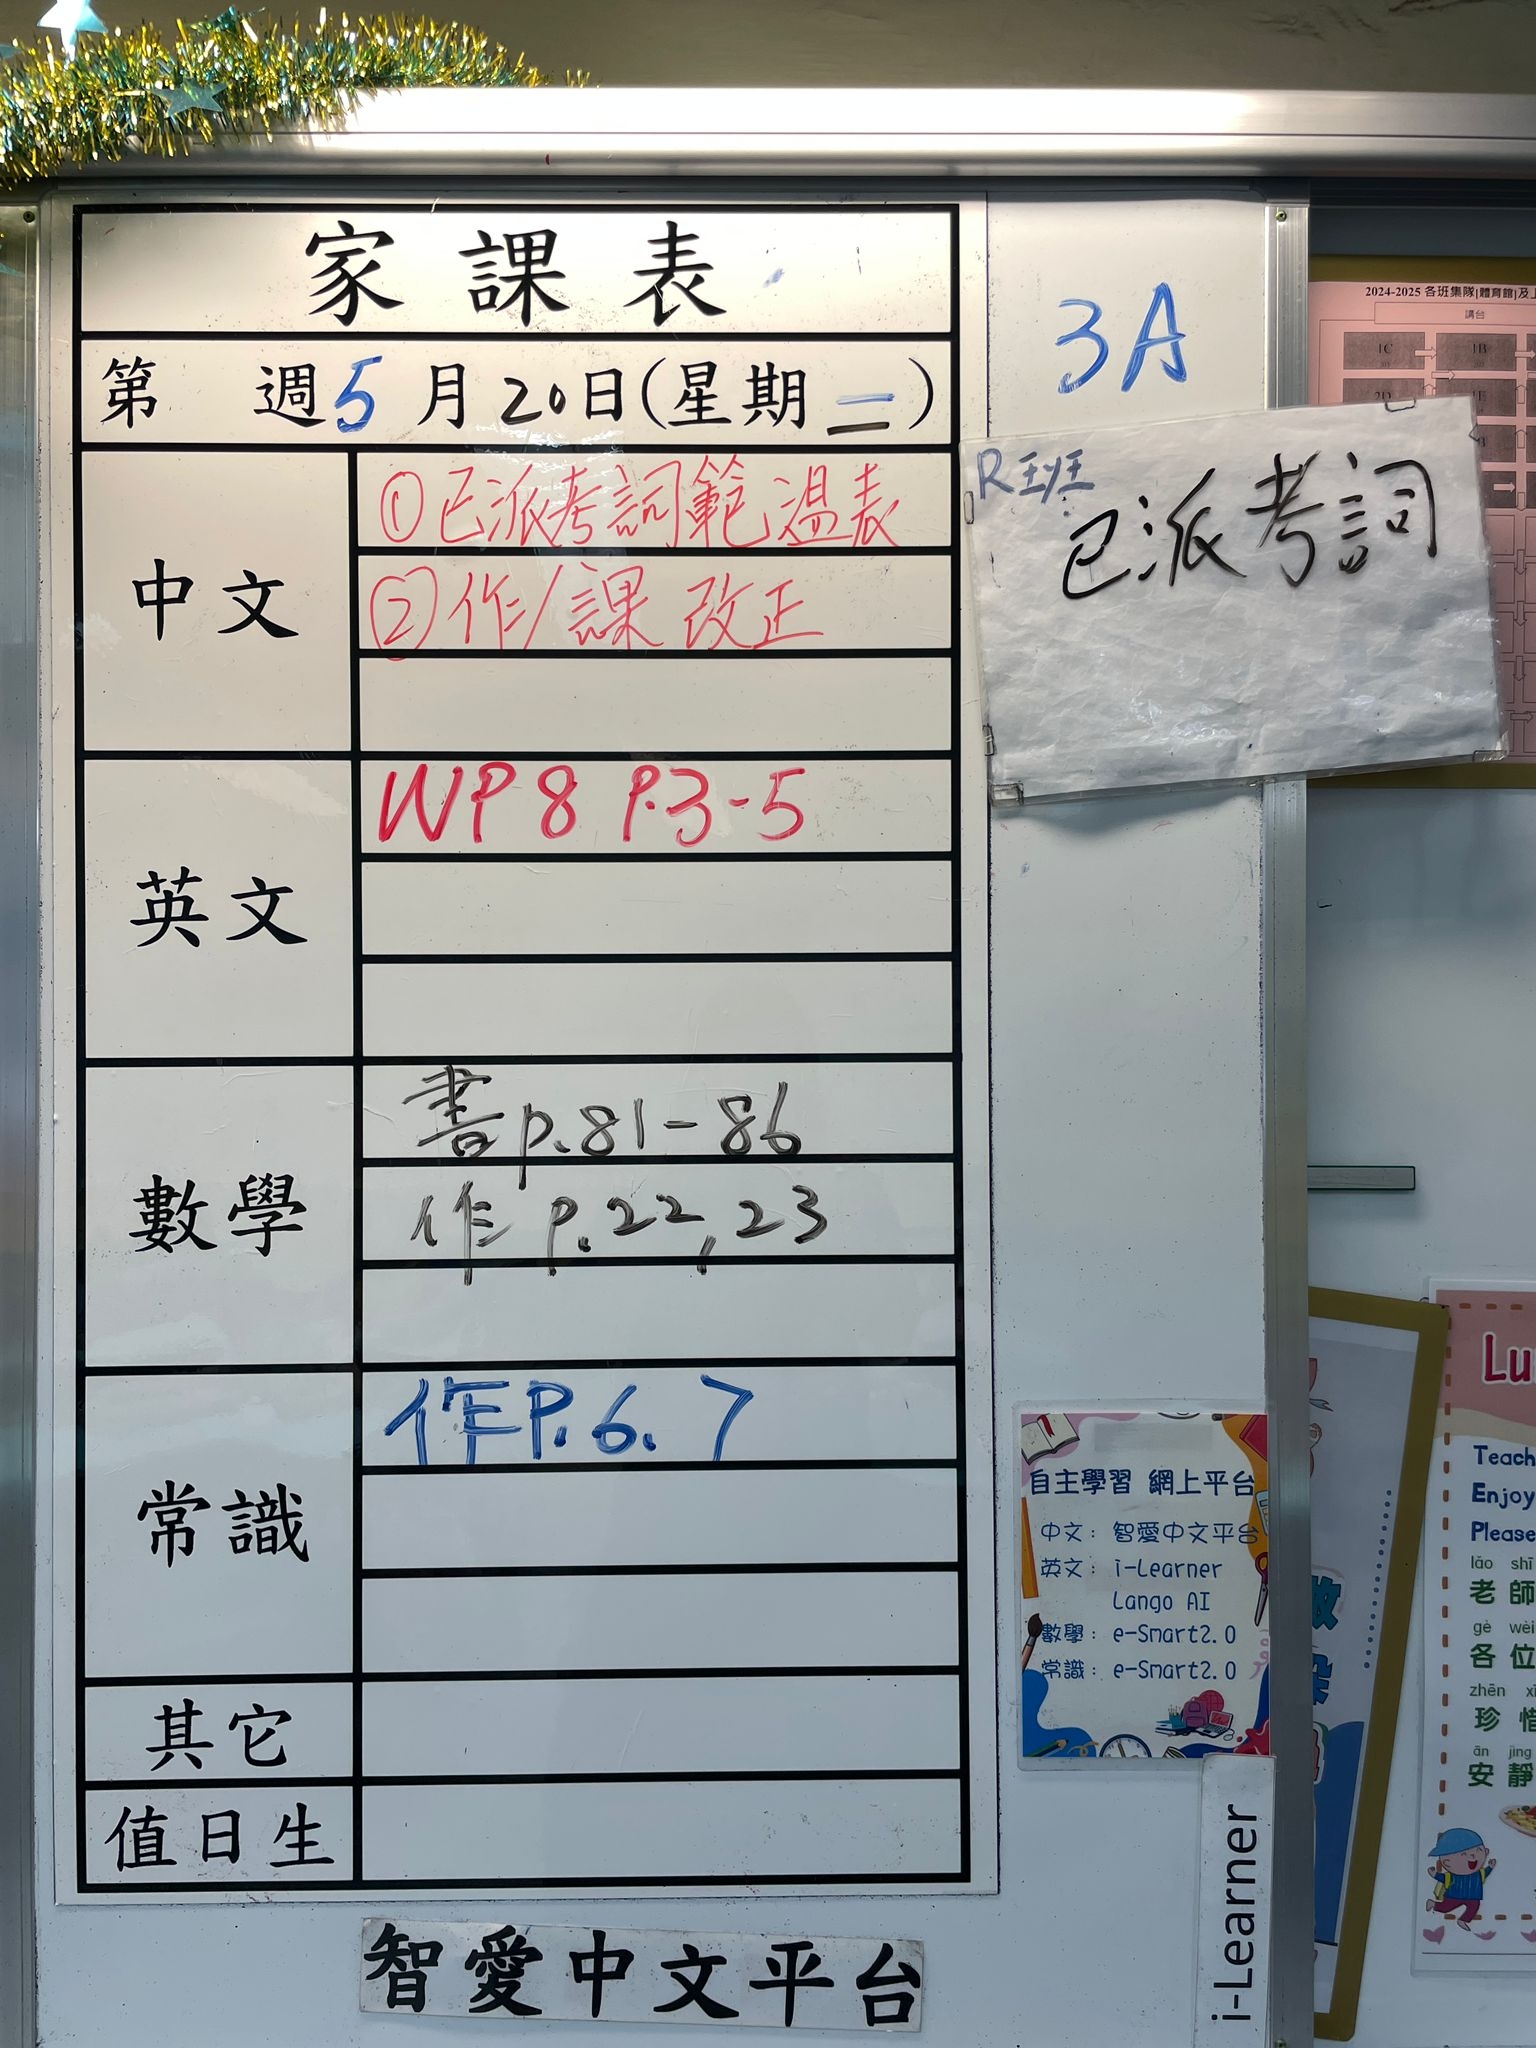 家課表
3A
第 週5月20日(星期二)
中文
①已派考詞範溫表
②作/課 改正
R班
已派考詞
英文
WP 8 P.3-5
數學
書p.81-86
作 p.22,23
常識
作P.6.7
其它
值日生
智愛中文平台
自主學習 網上平台
中文: 智愛中文平台
英文: i-Learner
Lango AI
數學: e-Smart2.0
常識: e-Smart2.0
i-Learner
2024-2025 各班集隊[體育館]及
講台
1C
1B
Teach
Enjoy
Please
lǎo shī
老師
gè wèi
各位
zhēn
珍惜
ān jìng
安靜